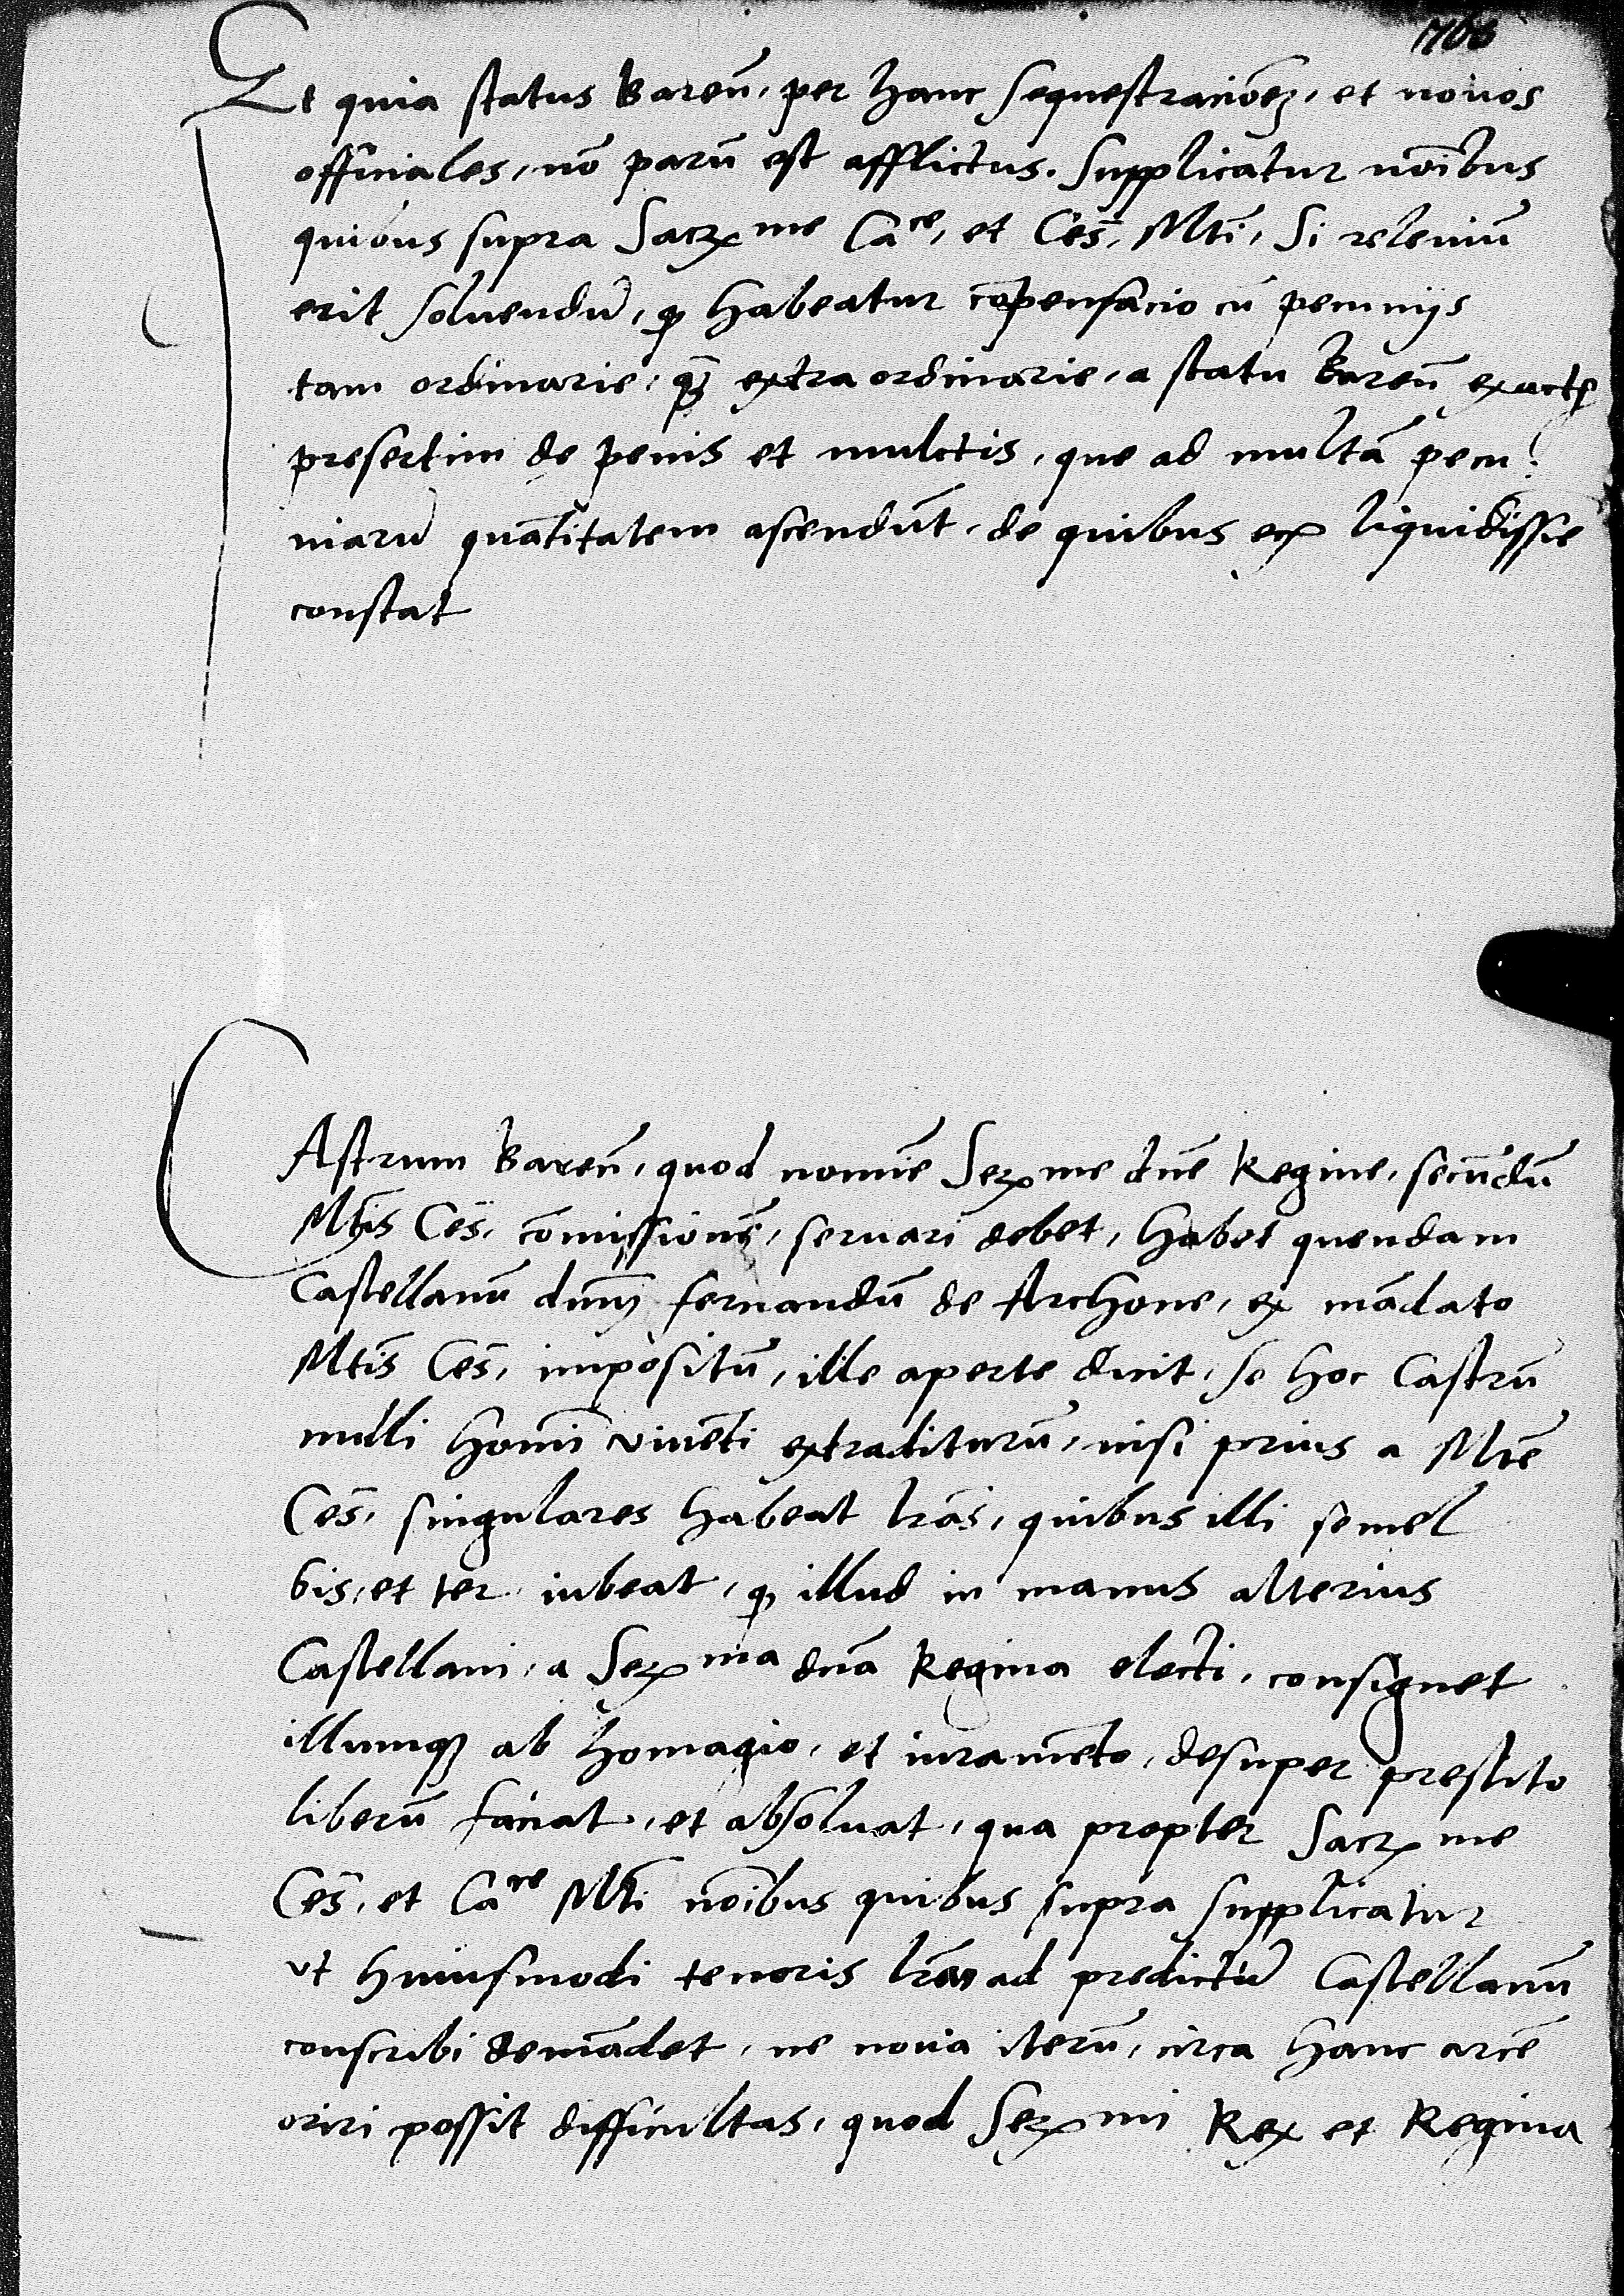 Et quia status Bareñ, per hanc sequestracioēz, et nouos
officiales, nō parū est afflictus. Supplicatur noībus
quibus supra Sacrme Cace, et Ces̄, Mti, Si releuiū
erit soluendū, qp habeatur cōpensacio cū pecunijs
tam ordinarie, qz extra ordinarie, a statu Bareñ exactis
presertim de penis et mulctis, que ad multā pecu
niarū quātitatem ascendūt, de quibus ex liquidissīe
constat
CAstrum Bareñ, quod nomīe Serme dn̄e Regine, secūdū
Mtis Ces̄, comissionē, seruari debet, habet quendam
Castellanū dnm̄ fernandū de Archone, ex mādato
Mtis Ces̄, impositū, ille aperte dicit, se hoc Castrū
nulli homī viuēti extraditurū, nisi prius a Mte
Ces̄, singulares habeat lrās, quibus illi semel
bis, et ter iubeat, qp illud in manus alterius
Castellani, a Serma dn̄a Regina electi, consignet
illumqz ab homagio, et iuramēto, desuper prestito
liberū faciat, et absoluat, qua propter Sacrme
Ces̄, et Cace Mti noībus quibus supra supplicatur
vt huiusmodi tenoris lrās ad predictū Castellanū
conscribi demādet, ne noua iterū, circa hanc arcē
oriri possit difficultas, quod Sermi Rex et Regina